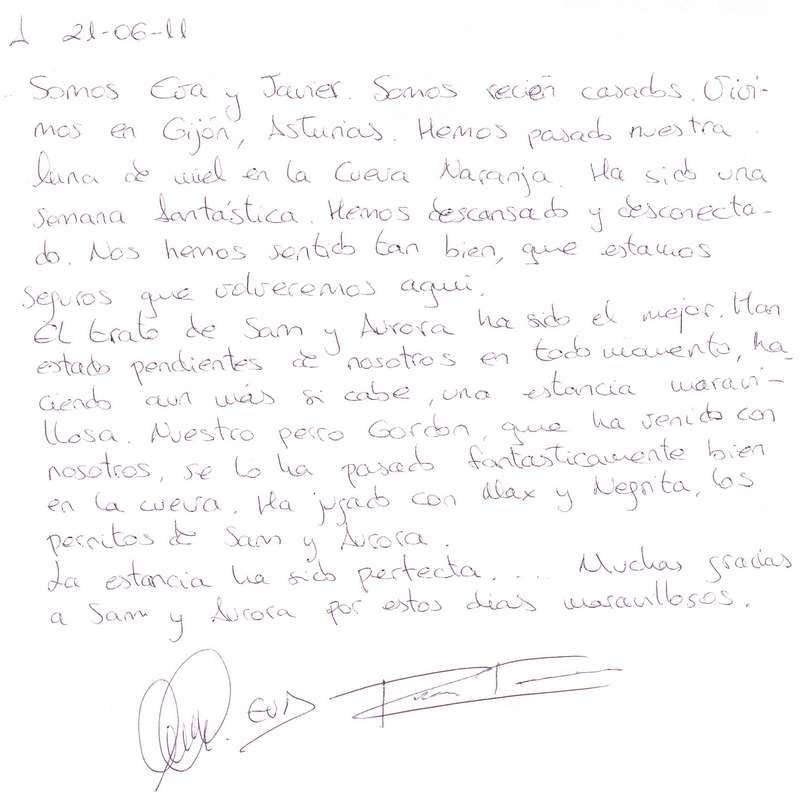 1 21-06-11
Somos Eva y Javier. Somos recién casados. Vivi-
mos en Gijón, Asturias. Hemos pasado nuestra
luna de miel en la Cueva Naranja. Ha sido una
semana fantástica. Hemos descansado y desconecta-
do. Nos hemos sentido tan bien, que estamos
seguros que volveremos aquí.
El trato de Sam y Aurora ha sido el mejor. Han
estado pendientes de nosotros en todo momento, ha-
ciendo aun más si cabe, una estancia maravi-
llosa. Nuestro perro Gordon, que ha venido con
nosotros, se lo ha pasado fantasticamente bien
en la cueva. Ha jugado con Max y Negrita, los
perritos de Sam y Aurora.
La estancia ha sido perfecta.... Muchas gracias
a Sam y Aurora por estos dias maravillosos.
EVA